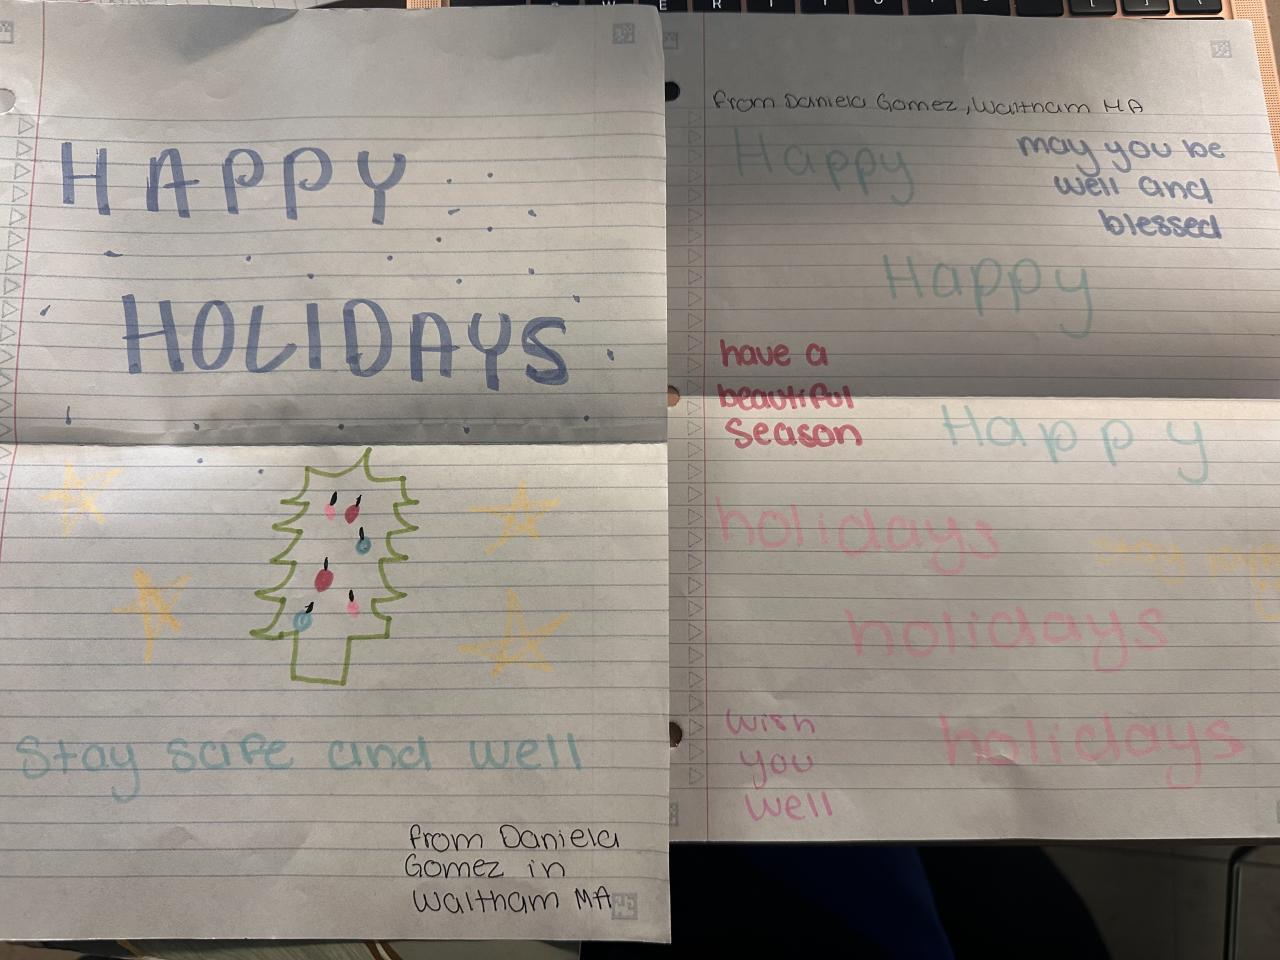 HAPPY
HOLIDAYS
Stay safe and well
from Daniela
Gomez in
Waltham MA
from Daniela Gomez, Waltham MA
Happy
may you be
well and
blessed
Happy
have a
beautiful
season
Happy
holidays
stay
holidays
holidays
wish
you
well